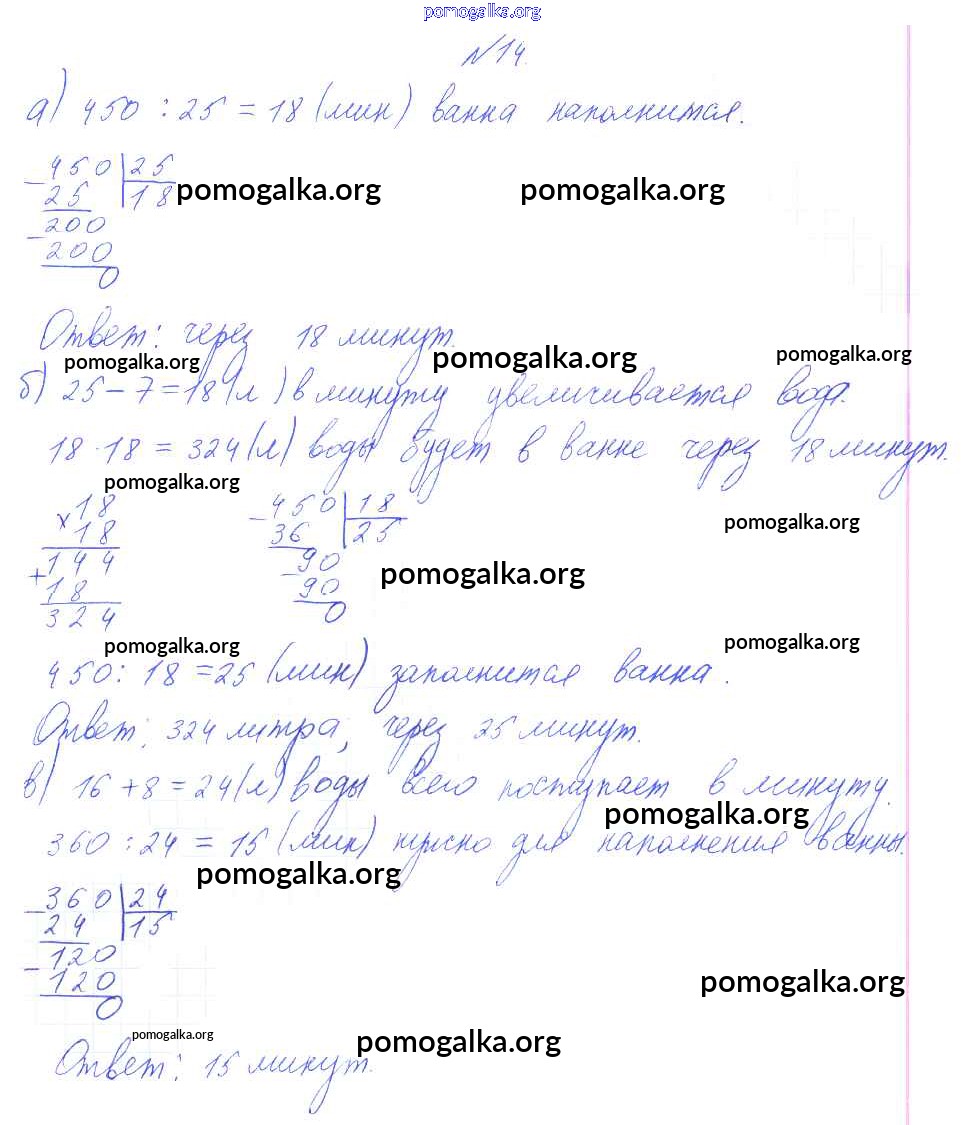 pomogalka.org
№14.
а) 450 : 25 = 18 (мин) ванна наполнится.
450 25
25 18
pomogalka.org pomogalka.org
200
200
0
Ответ: через 18 минут.
pomogalka.org pomogalka.org pomogalka.org
б) 25 – 7 = 18 (л) в минуту увеличивается вода.
18 · 18 = 324 (л) воды будет в ванне через 18 минут.
pomogalka.org
× 18
18
144
+ 18
324
450 18
36 25
90
90
0
pomogalka.org
pomogalka.org
pomogalka.org pomogalka.org
450 : 18 = 25 (мин) заполнится ванна.
Ответ: 324 литра, через 25 минут.
в) 16 + 8 = 24 (л) воды всего поступает в минуту.
pomogalka.org
360 : 24 = 15 (мин) нужно для наполнения ванны.
pomogalka.org
360 24
24 15
120
120
0
pomogalka.org
pomogalka.org pomogalka.org
Ответ: 15 минут.